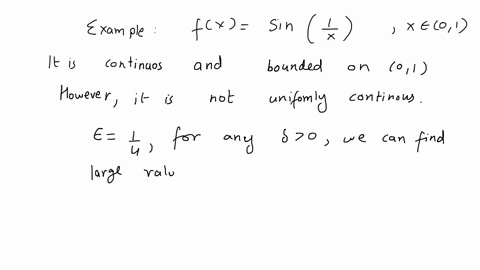 Example: f(x) = Sin (1/x) , x ∈ (0,1)
It is continuos and bounded on (0,1)
However, it is not unifomly continous.
ϵ = 1/4, for any δ > 0, we can find
large valu